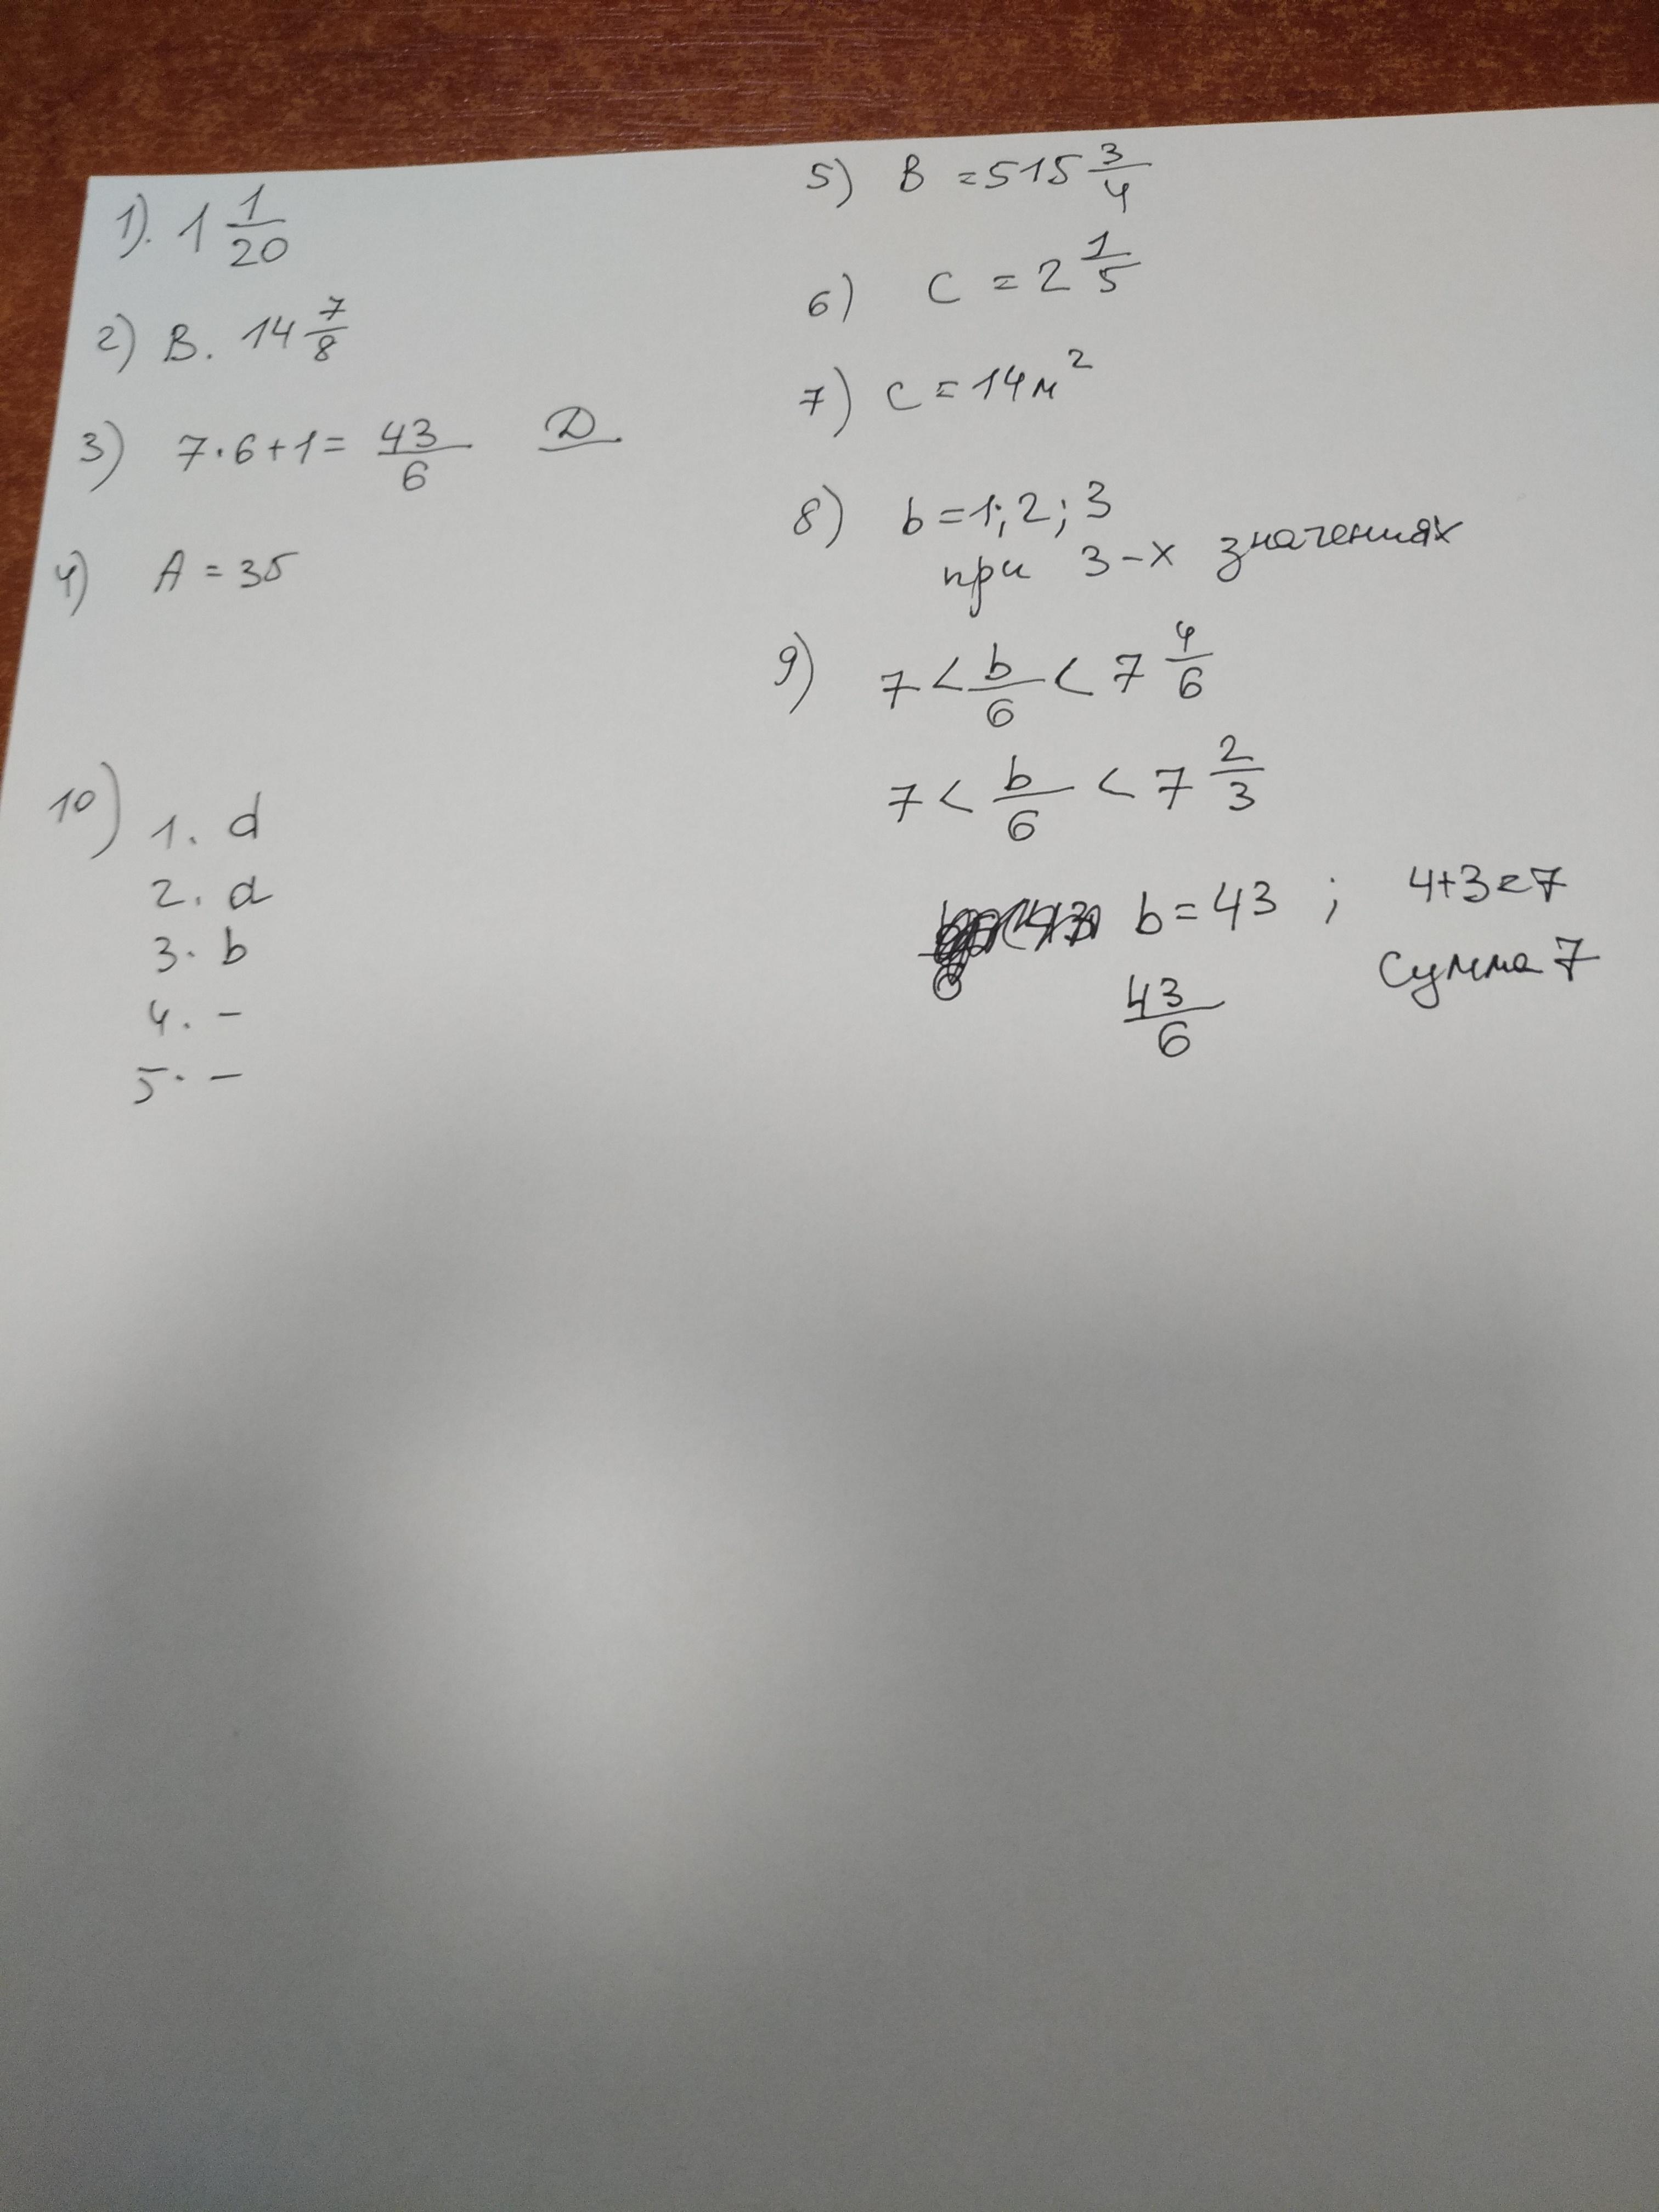 1). 1 1/20
2) В. 14 7/8
3) 7·6+1= 43/6 D
4) А = 35
10) 1. d
2. a
3. b
4. –
5. –
5) В =515 3/4
6) С = 2 1/5
7) С = 14м²
8) b=1; 2; 3
при 3-х значениях
9) 7 < b/6 < 7 4/6
7 < b/6 < 7 2/3
b = 43 ; 4+3=7
43/6 Сумма 7